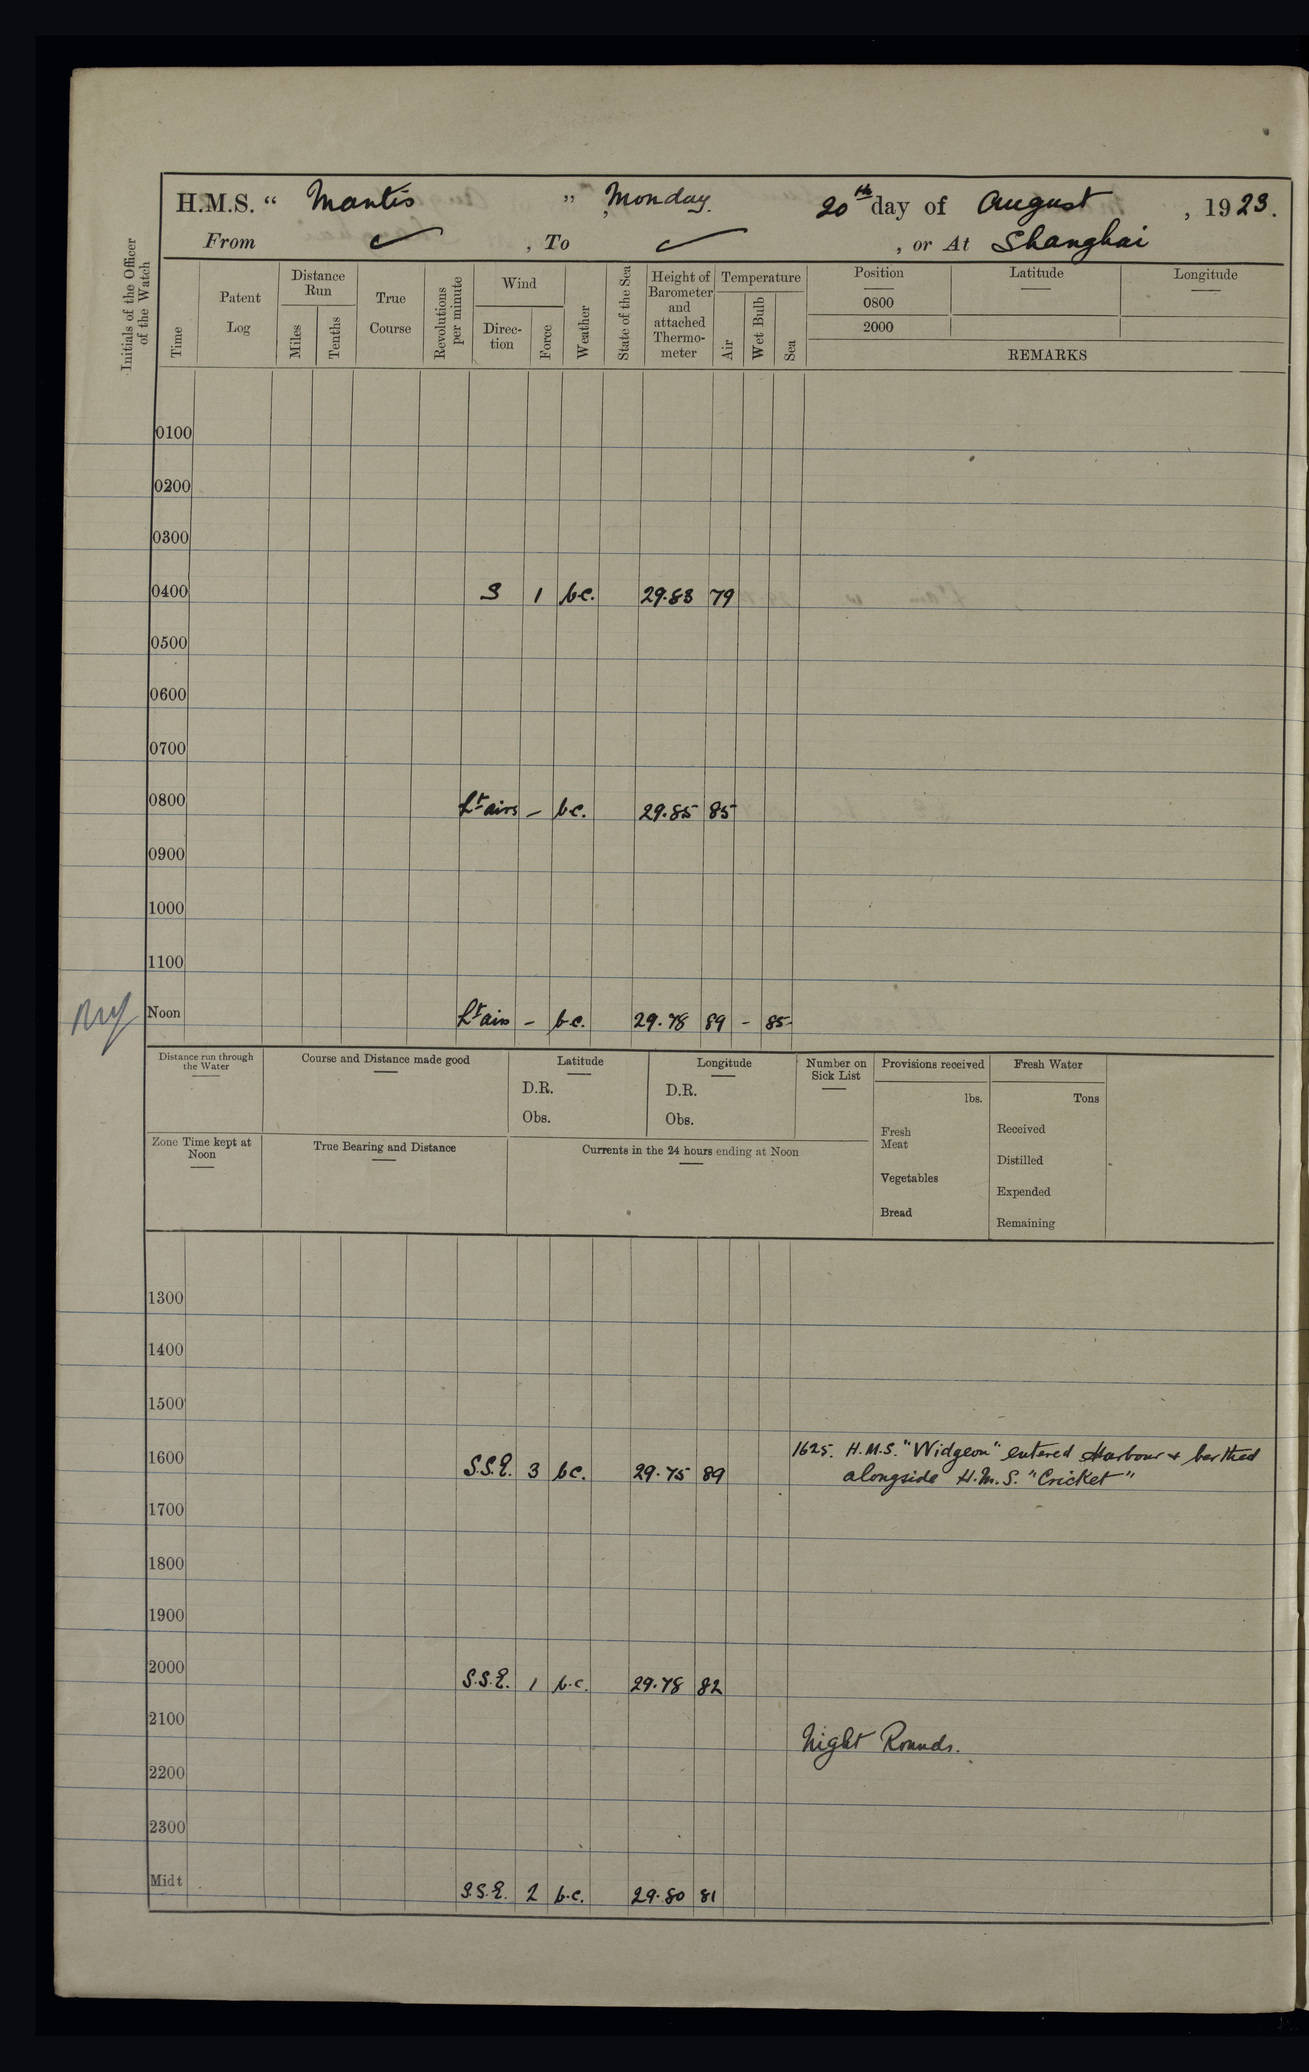 H.M.S. “ Mantis ” Monday. 20th day of August , 1923.
From ✓ , To ✓ , or At Shanghai
Initials of the Officer of the Watch
Time
Patent Log
Distance Run
Miles
Tenths
True Course
Revolutions per minute
Wind
Direc-tion
Force
Weather
State of the Sea
Height of Barometer and attached Thermo-meter
Temperature
Air
Wet Bulb
Sea
Position Latitude Longitude
0800
2000
REMARKS
0100
0200
0300
0400 S 1 bc. 29.83 79
0500
0600
0700
0800 Lt airs – bc. 29.85 85
0900
1000
1100
Noon Lt airs – b.c. 29.78 89 – 85
Distance run through the Water
Course and Distance made good
Latitude
D.R.
Obs.
Longitude
D.R.
Obs.
Number on Sick List
Provisions received
lbs.
Fresh Meat
Vegetables
Bread
Fresh Water
Tons
Received
Distilled
Expended
Remaining
Zone Time kept at Noon
True Bearing and Distance
Currents in the 24 hours ending at Noon
1300
1400
1500
1625. H.M.S. "Widgeon" entered Harbour & berthed
alongside H.M.S. "Cricket"
1600 S.S.E. 3 bc. 29.75 89
1700
1800
1900
2000 S.S.E. 1 b.c. 29.78 82
2100
Night Rounds.
2200
2300
Midt S.S.E. 2 b.c. 29.80 81